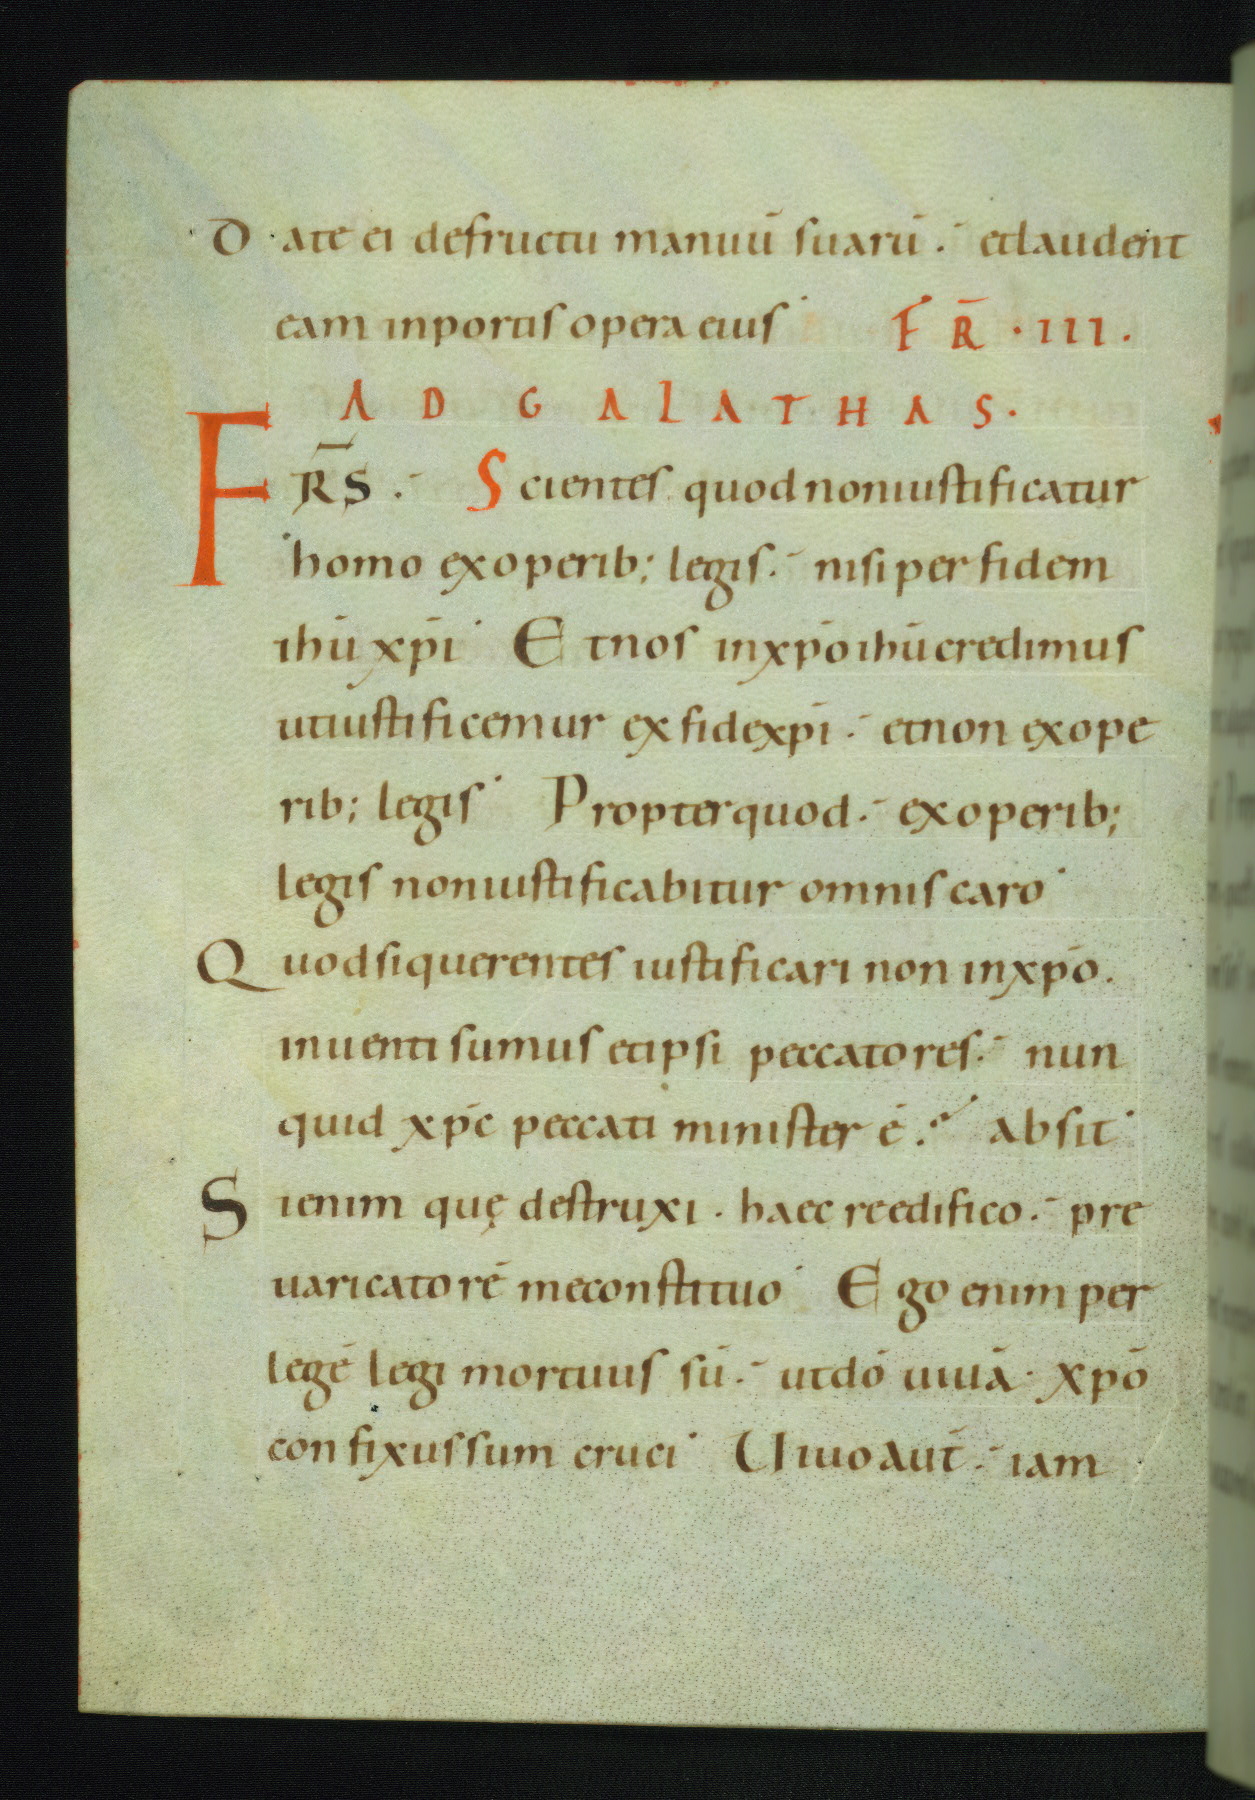 Date ei defructu manuū suarū. etlaudent
eam inportis opera eius FR̄ · III ·
AD GALATHAS.
FR̄S. Scientes quod noniustificatur
homo exoperib; legis. nisi per fidem
ihū xp̄i Et nos inxp̄o ihū credimus
utiustificemur ex fidexp̄i. etnon exope
rib; legis Propterquod. exoperib;
legis noniustificabitur omnis caro
Quodsiquerentes iustificari non inxp̄o.
inuenti sumus etipsi peccatores. nun
quid xp̄c peccati minister ē. absit
Sienim quę destruxi. haec reedifico. pre
uaricatorē meconstituo Ego enim per
legē legi mortuus sū. utdō uiuā. Xp̄o
confixussum cruci Uiuo aut̄. iam